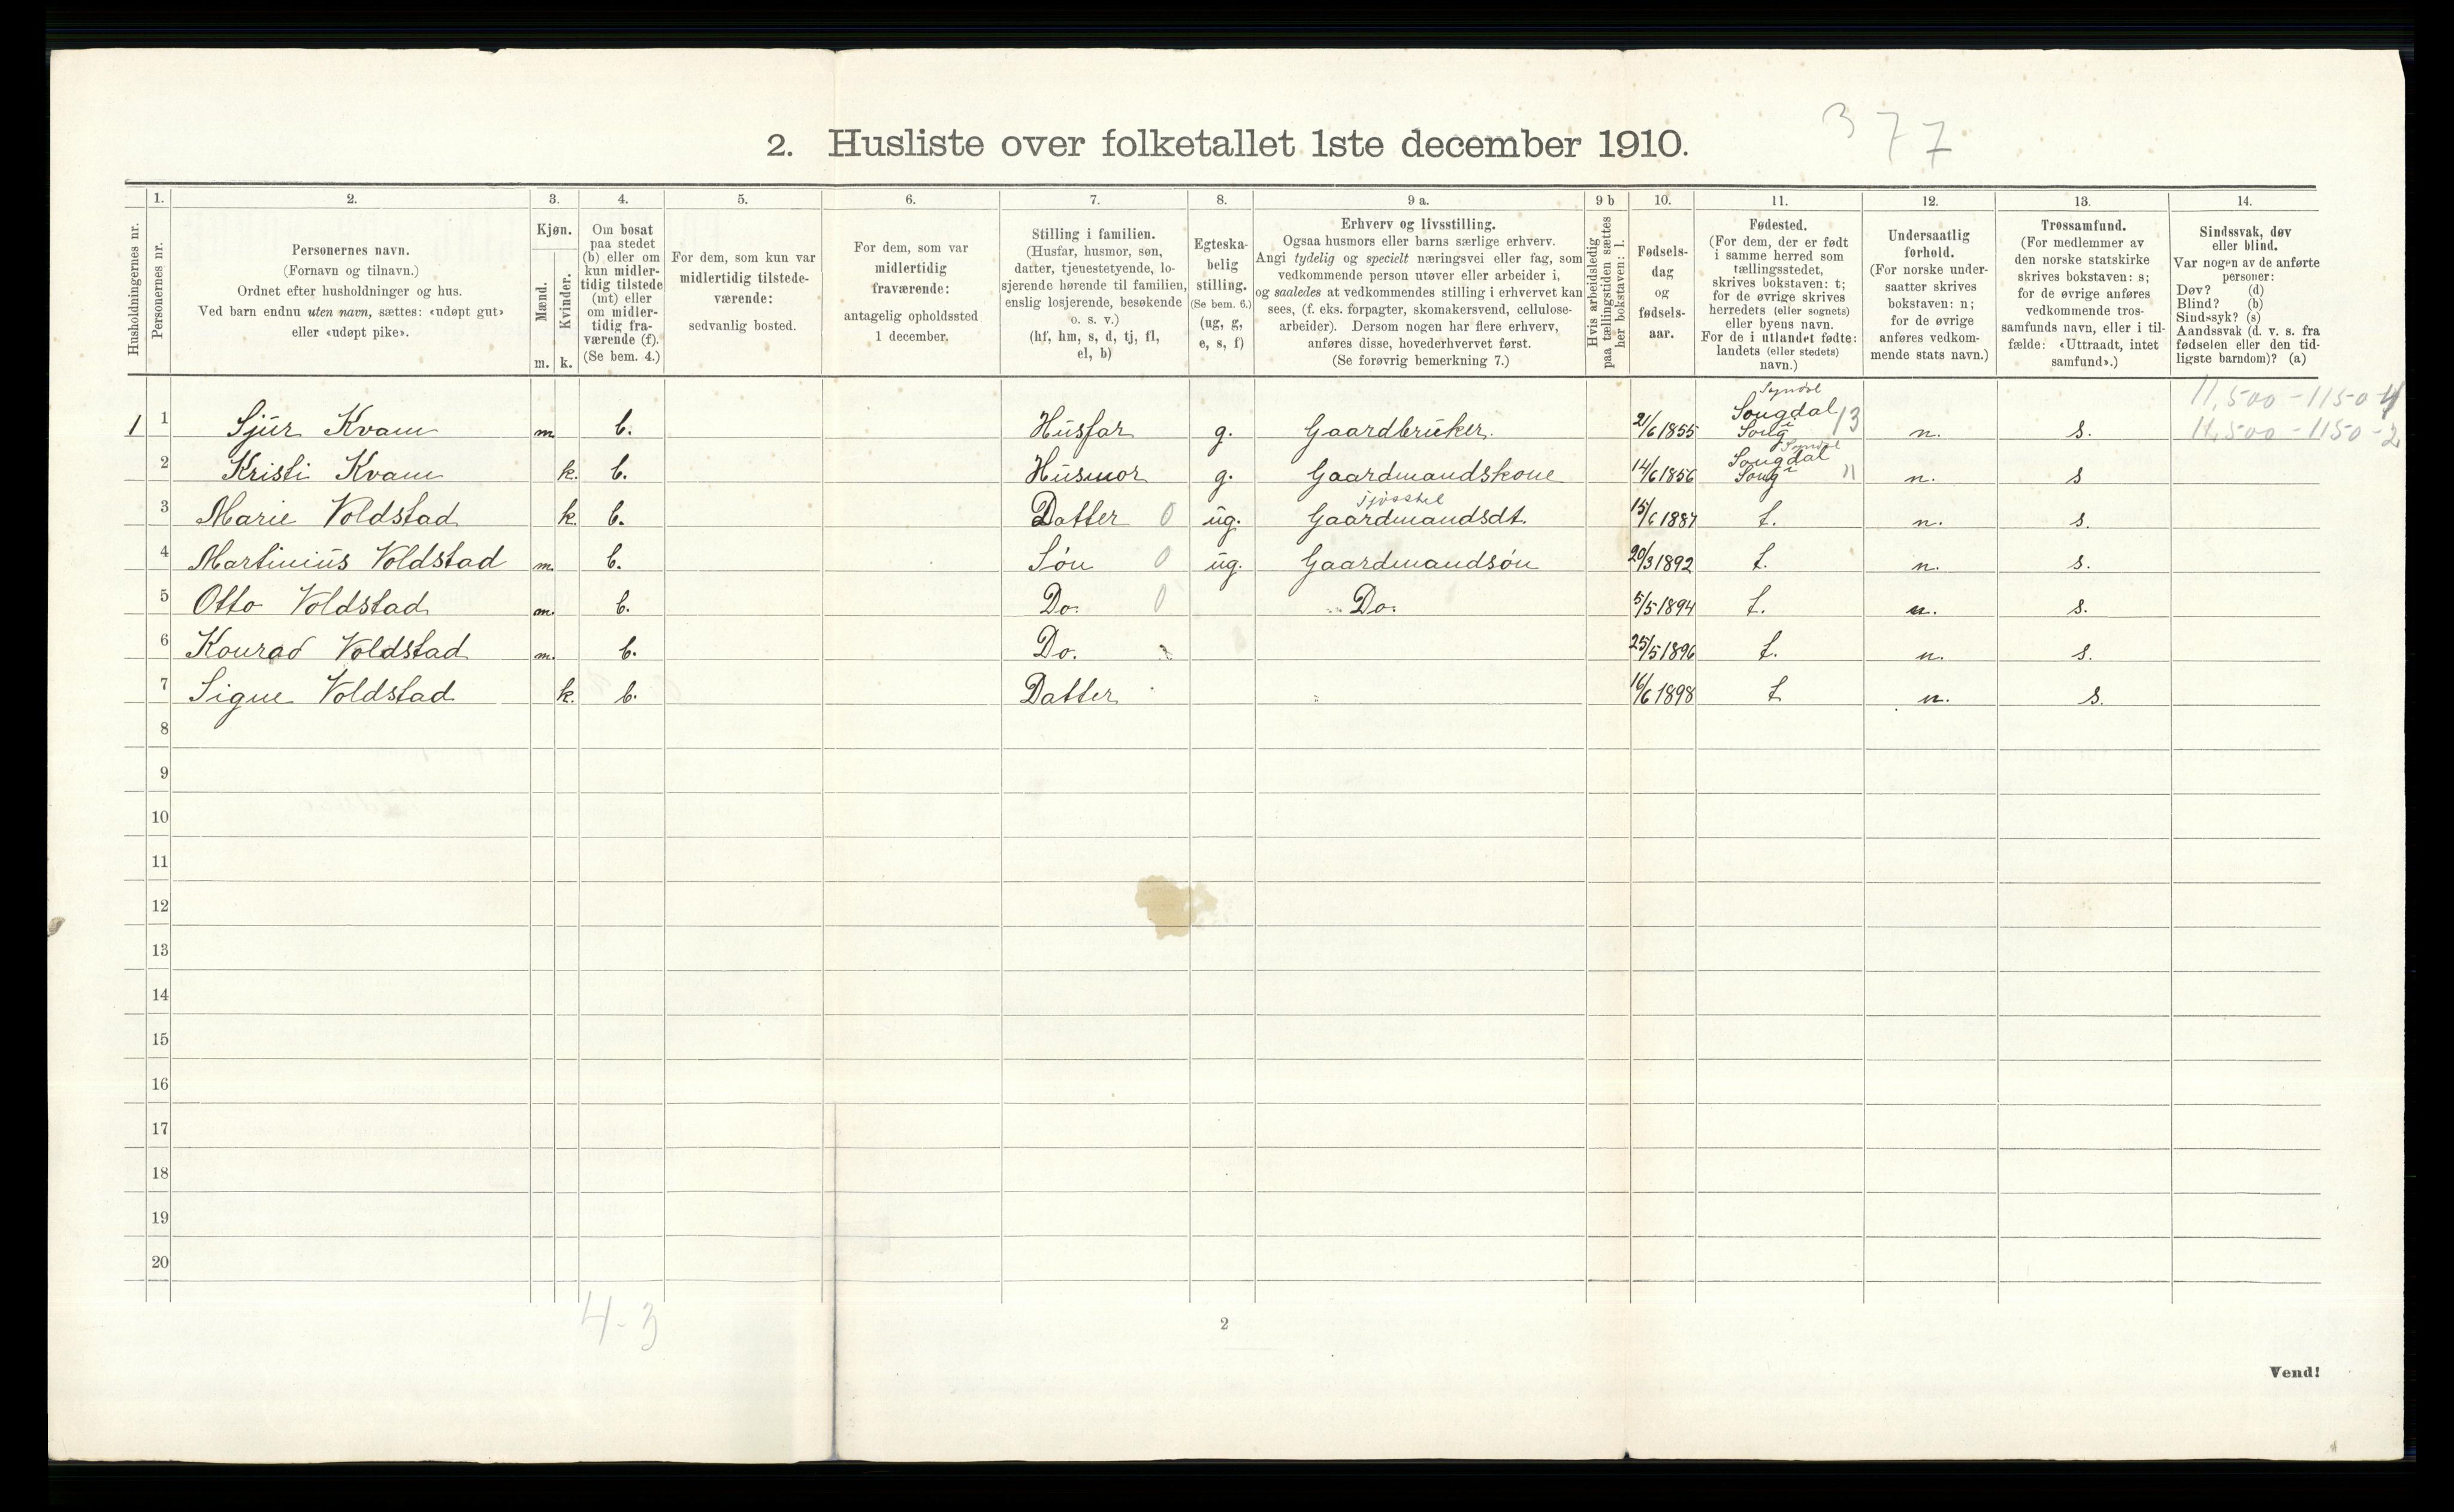 377
2. Husliste over folketallet 1ste december 1910.
Husholdningernes nr.
1.
Personernes nr.
2.
Personernes navn.
(Fornavn og tilnavn.)
Ordnet efter husholdninger og hus.
Ved barn endnu uten navn, sættes: «udøpt gut»
eller «udøpt pike».
3.
Kjøn.
Mænd.
Kvinder.
m. k.
4.
Om bosat
paa stedet
(b) eller om
kun midler-
tidig tilstede
(mt) eller
om midler-
tidig fra-
værende (f).
(Se bem. 4.)
5.
For dem, som kun var
midlertidig tilstede-
værende:
sedvanlig bosted.
6.
For dem, som var
midlertidig
fraværende:
antagelig opholdssted
1 december.
7.
Stilling i familien.
(Husfar, husmor, søn,
datter, tjenestetyende, lo-
sjerende hørende til familien,
enslig losjerende, besøkende
o. s. v.)
(hf, hm, s, d, tj, fl,
el, b)
8.
Egteska-
belig
stilling.
(Se bem. 6.)
(ug, g,
e, s, f)
9 a.
Erhverv og livsstilling.
Ogsaa husmors eller barns særlige erhverv.
Angi tydelig og specielt næringsvei eller fag, som
vedkommende person utøver eller arbeider i,
og saaledes at vedkommendes stilling i erhvervet kan
sees, (f. eks. forpagter, skomakersvend, cellulose-
arbeider). Dersom nogen har flere erhverv,
anføres disse, hovederhvervet først.
(Se forøvrig bemerkning 7.)
9 b
Hvis arbeidsledig
paa tællingstiden sættes
her bokstaven: l.
10.
Fødsels-
dag
og
fødsels-
aar.
11.
Fødested.
(For dem, der er født
i samme herred som
tællingsstedet,
skrives bokstaven: t;
for de øvrige skrives
herredets (eller sognets)
eller byens navn.
For de i utlandet fødte:
landets (eller stedets)
navn.)
12.
Undersaatlig
forhold.
(For norske under-
saatter skrives
bokstaven: n;
for de øvrige
anføres vedkom-
mende stats navn.)
13.
Trossamfund.
(For medlemmer av
den norske statskirke
skrives bokstaven: s;
for de øvrige anføres
vedkommende tros-
samfunds navn, eller i til-
fælde: «Uttraadt, intet
samfund».)
14.
Sindssvak, døv
eller blind.
Var nogen av de anførte
personer:
Døv? (d)
Blind? (b)
Sindssyk? (s)
Aandssvak (d. v. s. fra
fødselen eller den tid-
ligste barndom)? (a)
11,500 - 1150 - 4
1 1 Sjur Kvam m. b. Husfar g. Gaardbruker. 21/6 1855 Sougdal i Soug 13 n. s. 11,500 - 1150 - 2
2 Kristi Kvam k. b. Husmor g. Gaardmandskone 14/6 1856 Sougdal i Soug 11 n. s
3 Marie Voldstad k. b. Datter 0 ug. Gaardmandsdt. 15/6 1887 t. n. s.
4 Martinius Voldstad m. b. Søn 0 ug. Gaardmandsøn 20/3 1892 t. n. s.
5 Otto Voldstad m. b. Do. 0 Do. 5/5 1894 t. n. s.
6 Konrad Voldstad m. b. Do. 25/5 1896 t. n. s.
7 Signe Voldstad k. b. Datter 16/6 1898 t n. s.
8
9
10
11
12
13
14
15
16
17
18
19
20
4-3
2
Vend!